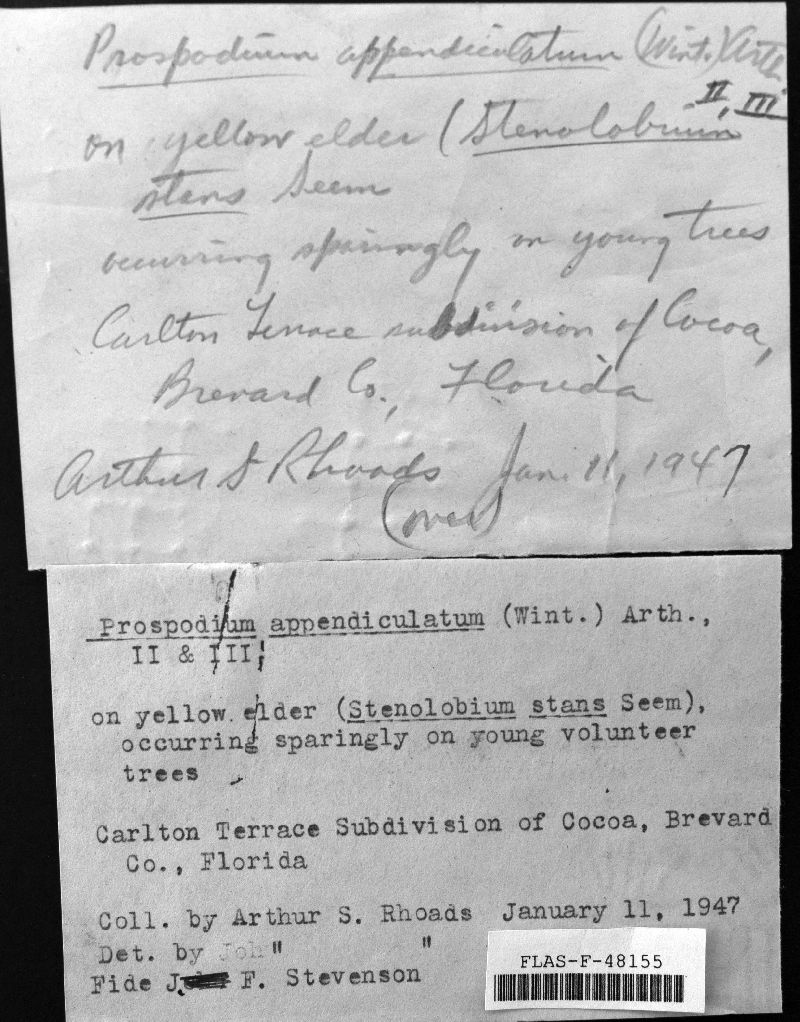 Prospodium appendiculatum (Wint.) Arth.
II, III
on yellow elder (Stenolobium
stans Seem
occurring sparingly on young trees
Carlton Terrace subdivision of Cocoa,
Brevard Co., Florida
Arthur S Rhoads Jan. 11, 1947
(over)
Prospodium appendiculatum (Wint.) Arth.,
II & III;
on yellow elder (Stenolobium stans Seem),
occurring sparingly on young volunteer
trees
Carlton Terrace Subdivision of Cocoa, Brevard
Co., Florida
Coll. by Arthur S. Rhoads January 11, 1947
Det. by " "
Fide J. F. Stevenson
FLAS-F-48155